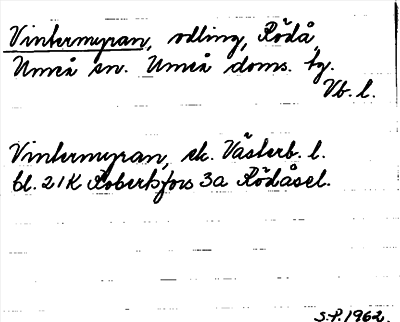 Vintermyran, odling, Rödå,
Umeå sn. Umeå doms. tg.
Vb. l.
Vintermyran, ek. Västerb. l.
bl. 21K Robertsfors 3a Rödåsel.
S.P. 1962.